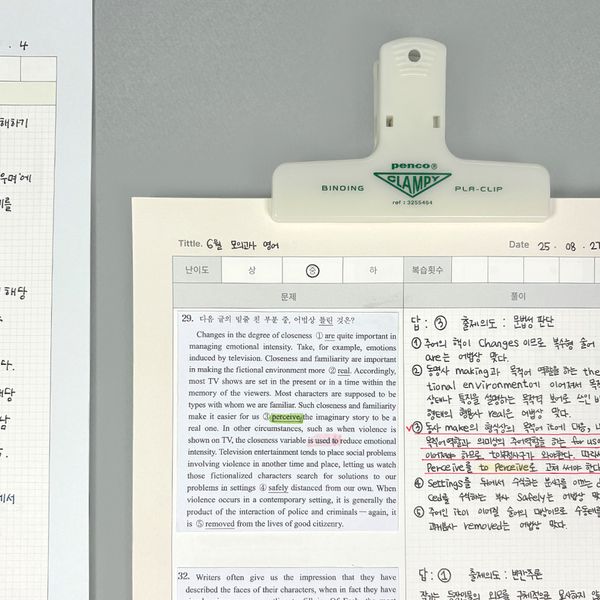 . 4
해하기
우며'에
기를
해당
다.
해당
남
에서
penco®
CLAMPY
BINDING PLA-CLIP
ref : 3255454
Tittle. 6월 모의고사 영어
Date 25 . 08 . 27
난이도 상 중 하 복습횟수
문제 풀이
29. 다음 글의 밑줄 친 부분 중, 어법상 틀린 것은?
Changes in the degree of closeness ① are quite important in
managing emotional intensity. Take, for example, emotions
induced by television. Closeness and familiarity are important
in making the fictional environment more ② real. Accordingly,
most TV shows are set in the present or in a time within the
memory of the viewers. Most characters are supposed to be
types with whom we are familiar. Such closeness and familiarity
make it easier for us ③ perceive the imaginary story to be a
real one. In other circumstances, such as when violence is
shown on TV, the closeness variable is used to reduce emotional
intensity. Television entertainment tends to place social problems
involving violence in another time and place, letting us watch
those fictionalized characters search for solutions to our
problems in settings ④ safely distanced from our own. When
violence occurs in a contemporary setting, it is generally the
product of the interaction of police and criminals — again, it
is ⑤ removed from the lives of good citizenry.
32. Writers often give us the impression that they have
described the faces of their characters, when in fact they have
답 : ③ 출제의도 : 문법성 판단
① 주어의 핵이 Changes 이므로 복수형 술어
are는 어법상 맞다.
② 동명사 making과 목적어 역할을 하는 the
tional environment에 이어져서 목적
상태나 특징을 설명하는 목적격 보어로 쓰인
형태의 형용사 real은 어법상 맞다.
③ 동사 make의 형식상의 목적어 it에 대응,
목적어역할과 의미상의 주어역할을 하는 for us
이어져야 하므로 to부정사구가 와야한다. 따라서
Perceive를 to Perceive로 고쳐 써야 한다
④ Settings를 뒤에서 수식하는 분사를 이끄는 d
ced를 수식하는 부사 Safely는 어법상 맞
⑤ 주어인 it이 이어질 술어의 대상이므로 수동태를
과거분사 removed는 어법상 맞다.
답 : ① 출제의도 : 빈칸추론